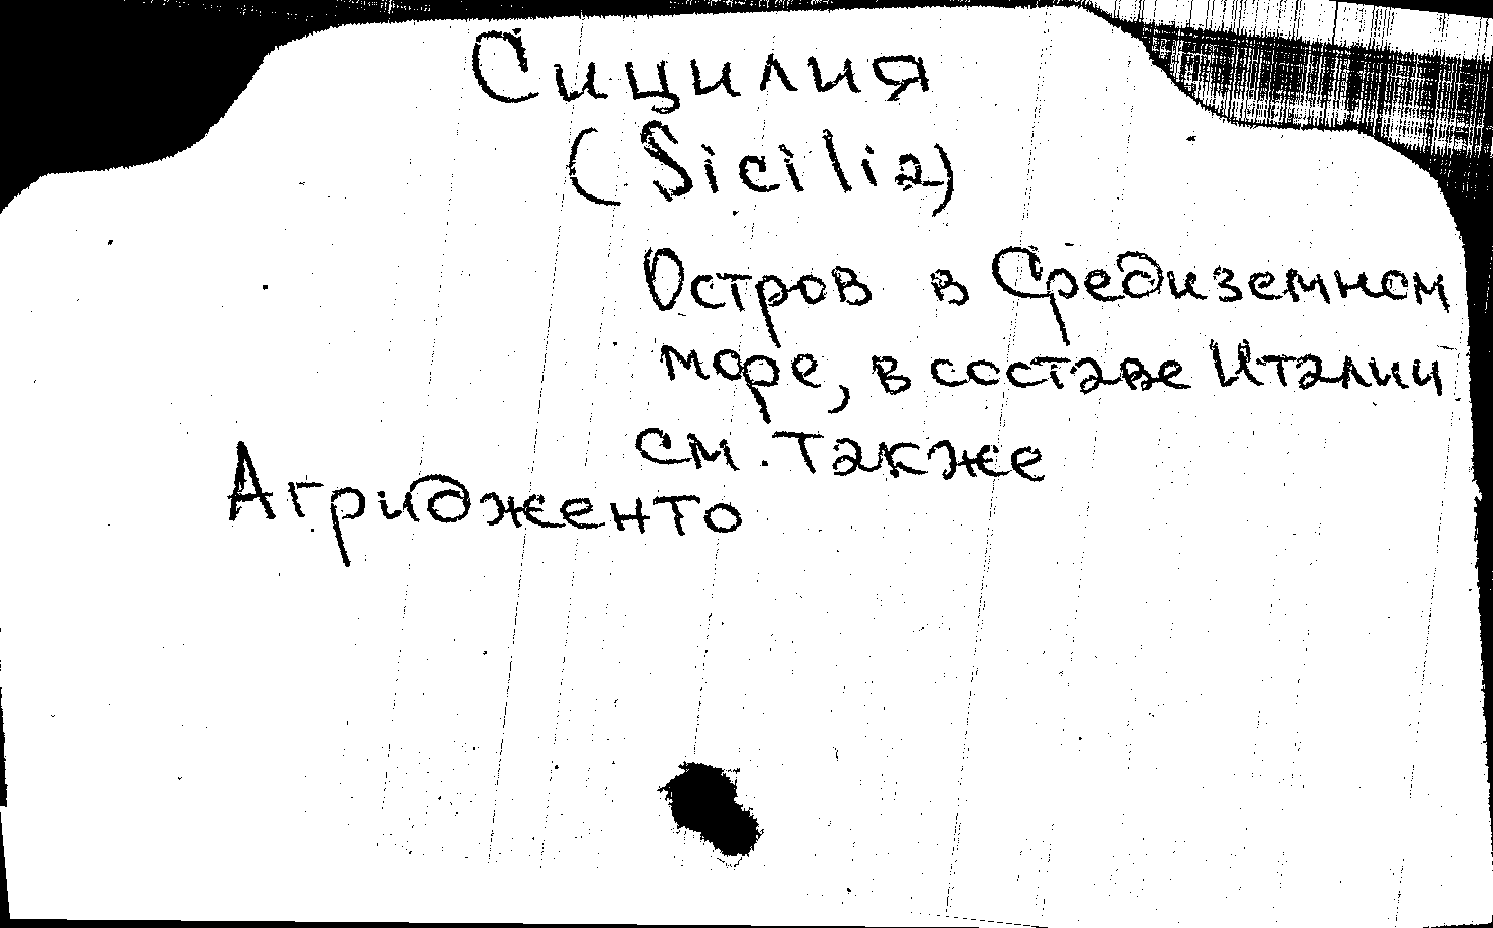 Сицилия
(Sicilia)
Остров в Средиземном
море, в составе Италии
см. также
Агридженто